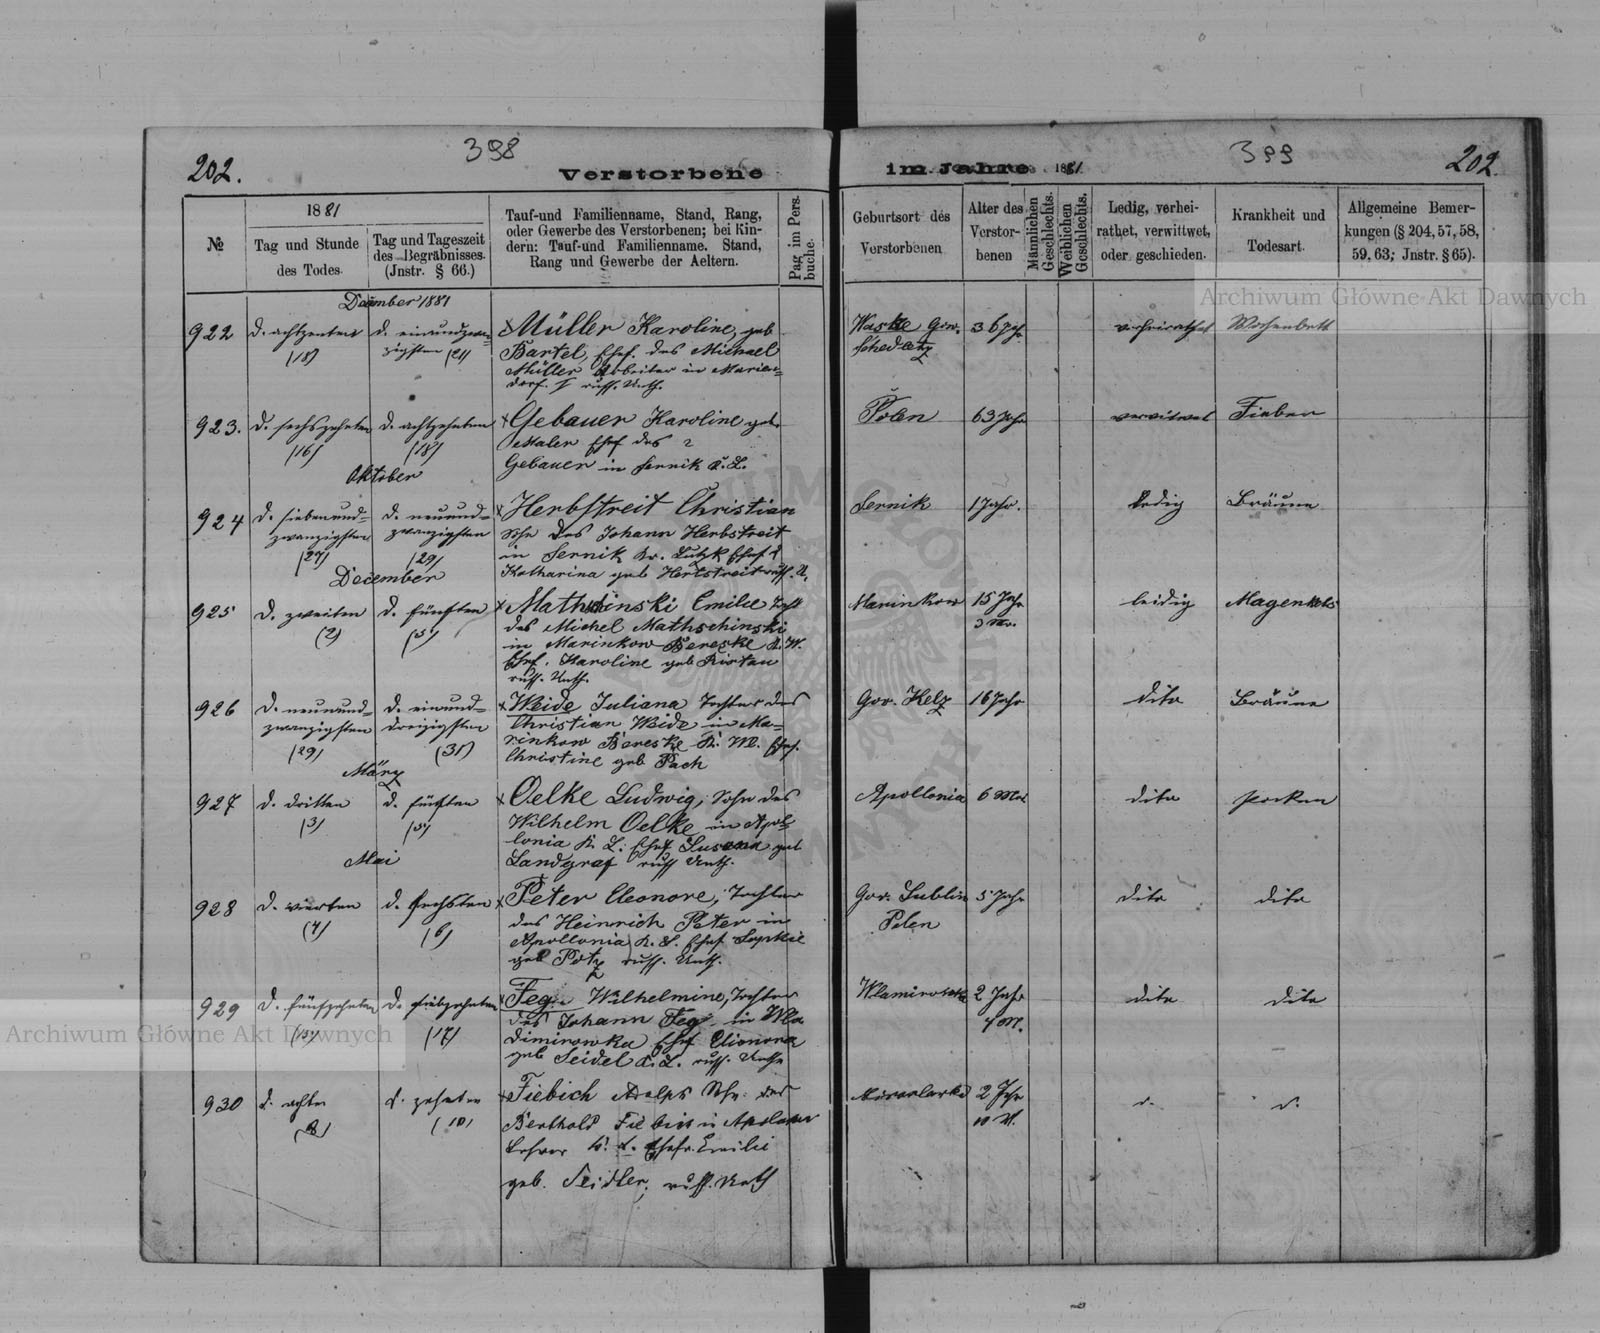 398
399
202.
202
Verstorbene
im Jahre 1881
№
1881
Tag und Stunde
des Todes.
Tag und Tageszeit
des Begräbnisses.
(Jnstr. § 66.)
Tauf-und Familienname, Stand, Rang,
oder Gewerbe des Verstorbenen; bei Kin-
dern: Tauf-und Familienname. Stand,
Rang und Gewerbe der Aeltern.
Pag im Pers.
buche.
Geburtsort des
Verstorbenen
Alter des
Verstor-
benen
Männlichen
Geschlechts.
Weiblichen
Geschlechts.
Ledig, verhei-
rathet, verwittwet,
oder geschieden.
Krankheit und
Todesart.
Allgemeine Bemer-
kungen (§ 204, 57, 58,
59, 63; Jnstr. § 65).
Archiwum Główne Akt Dawnych
December 1881
922
d. achtzenten
(18)
d. einundzwan=
zigsten (21)
Müller Karoline, geb
Bartel, Ehef. des Michael
Müller Arbeiter in Marien=
dorf. I russ. Unth.
Gow.
36 Jahr
verheirathet
Wochenbett
923.
d. sechszehnten
(16)
d. achtzehnten
(18)
Gebauer Karoline geb.
Maler Ehef des ?
Gebauer in Sernik K. L.
Polen
63 Jahr
verwitwet
Fieber
Oktober
924
d. siebenund=
zwanzigsten
(27)
d. neunund=
zwanzigsten
(29)
Herbstreit Christian
Sohn des Johann Herbstreit
in Sernik Kr. Lutzk Ehef.
Katharina geb Herbstreit russ. U.
Sernik
1 Jahr.
ledig
Bräune
December
925
d. zweiten
(2)
d. fünften
(5)
Mathschinski Emilie Tocht
des Michel Mathschinski
in Marinkow Bereske K. W.
Ehef. Karoline geb
russ. Unth.
Marinkow
15 Jahr
3 Mo.
leidig
926
d. neunund=
zwanzigsten
(29)
d. einund=
dreizigsten
(31)
Weide Juliana Tochter des
Christian Weide in Ma=
rinkow Bereske K. W. Ehef.
Christine geb Pach
Gov. Kelz
16 Jahr
dito
Bräune
März
927
d. dritten
(3)
d. fünften
(5)
Oelke Ludwig, Sohn des
Wilhelm Oelke in Apol=
lonia K. L. Ehef Susana geb
Landgraf russ Unth.
Apollonia
6 Mon
dito
pocken
Mai
928
d. vierten
(4)
d. sechsten
(6)
Peter Eleonore, Tochter
des Heinrich Peter in
Apollonia K. L. Ehef Sophie
geb Potz russ. Unth.
Gov. Lublin
Polen
5 Jahr
dito
dito
929
d. fünfzehnten
(15)
d. siebzehnten
(17)
Feg Wilhelmine, Tochter
des Johann Feg in Wla
dimirowka Ehef Elionora
geb Seidel K. L. russ. Unth
2 Jahr
4 M.
dito
dito
Archiwum Główne Akt Dawnych
930
d. achten
(8)
d. zehnten
(10)
Fiebich Adolph Sohn des
Berthold Fiebich in
Lehrer K. L. Ehefr. Emilie
geb. Seidler, russ. Unth
2 Jahr
10 M.
d.
d.